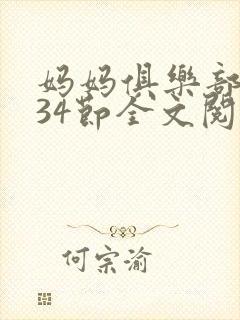 妈妈俱樂部
34節全文閱
何宗渝